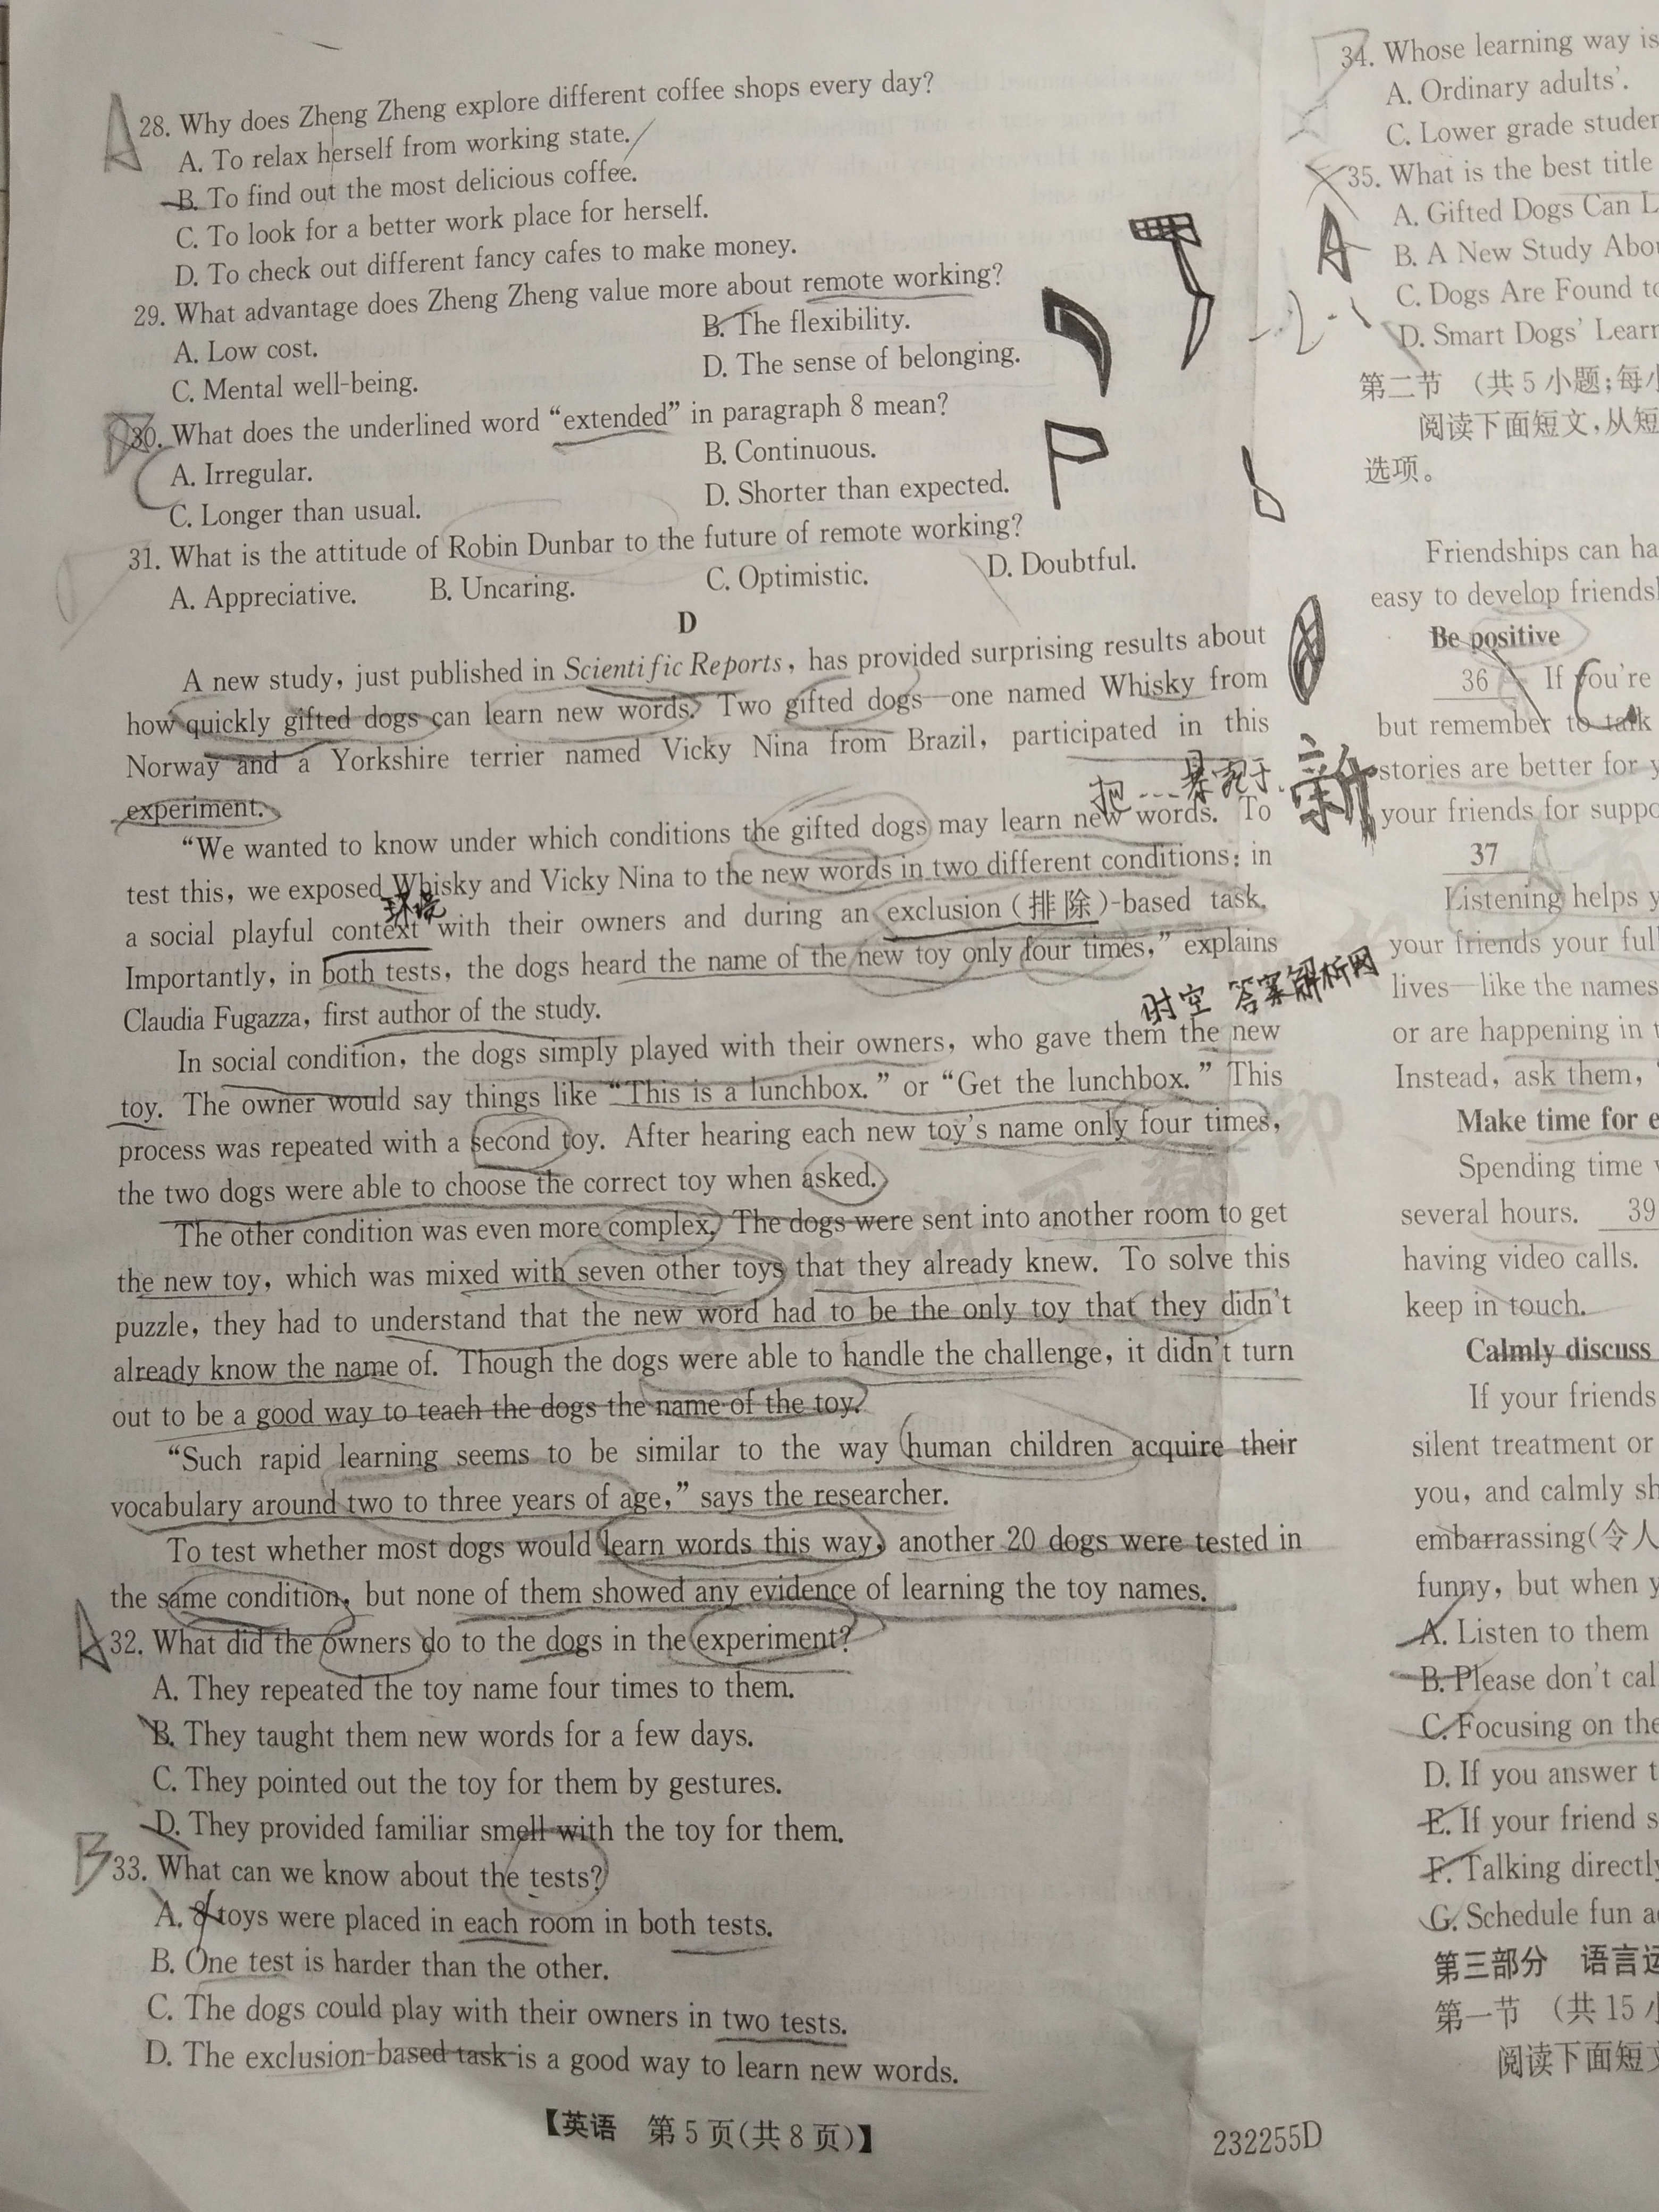 28. Why does Zheng Zheng explore different coffee shops every day?
A. To relax herself from working state.
B. To find out the most delicious coffee.
C. To look for a better work place for herself.
D. To check out different fancy cafes to make money.
29. What advantage does Zheng Zheng value more about remote working?
A. Low cost.
B. The flexibility.
C. Mental well-being.
D. The sense of belonging.
30. What does the underlined word “extended” in paragraph 8 mean?
A. Irregular.
B. Continuous.
C. Longer than usual.
D. Shorter than expected.
31. What is the attitude of Robin Dunbar to the future of remote working?
A. Appreciative. B. Uncaring. C. Optimistic. D. Doubtful.
D
A new study, just published in Scientific Reports, has provided surprising results about
how quickly gifted dogs can learn new words. Two gifted dogs—one named Whisky from
Norway and a Yorkshire terrier named Vicky Nina from Brazil, participated in this
experiment.
把...暴露于
新
“We wanted to know under which conditions the gifted dogs may learn new words. To
test this, we exposed Whisky and Vicky Nina to the new words in two different conditions: in
环境
a social playful context with their owners and during an exclusion (排除)-based task.
Importantly, in both tests, the dogs heard the name of the new toy only four times,” explains
Claudia Fugazza, first author of the study.
时空 答案解析网
In social condition, the dogs simply played with their owners, who gave them the new
toy. The owner would say things like “This is a lunchbox.” or “Get the lunchbox.” This
process was repeated with a second toy. After hearing each new toy's name only four times,
the two dogs were able to choose the correct toy when asked.
The other condition was even more complex. The dogs were sent into another room to get
the new toy, which was mixed with seven other toys that they already knew. To solve this
puzzle, they had to understand that the new word had to be the only toy that they didn't
already know the name of. Though the dogs were able to handle the challenge, it didn't turn
out to be a good way to teach the dogs the name of the toy.
“Such rapid learning seems to be similar to the way human children acquire their
vocabulary around two to three years of age,” says the researcher.
To test whether most dogs would learn words this way, another 20 dogs were tested in
the same condition, but none of them showed any evidence of learning the toy names.
A
32. What did the owners do to the dogs in the experiment?
A. They repeated the toy name four times to them.
B. They taught them new words for a few days.
C. They pointed out the toy for them by gestures.
D. They provided familiar smell with the toy for them.
B
33. What can we know about the tests?
A. 8 toys were placed in each room in both tests.
B. One test is harder than the other.
C. The dogs could play with their owners in two tests.
D. The exclusion-based task is a good way to learn new words.
【英语 第5页(共8页)】
232255D
34. Whose learning way is
A. Ordinary adults'.
C. Lower grade studen
35. What is the best title
A
A. Gifted Dogs Can L
B. A New Study Abou
C. Dogs Are Found to
D. Smart Dogs' Learn
第二节 (共5小题;每小
阅读下面短文,从短
选项。
Friendships can ha
easy to develop friendsh
Be positive
36 If you're
but remember to talk
stories are better for y
your friends for suppo
37
Listening helps y
your friends your full
lives—like the names
or are happening in t
Instead, ask them, “
Make time for e
Spending time w
several hours. 39
having video calls.
keep in touch.
Calmly discuss
If your friends
silent treatment or
you, and calmly sh
embarrassing(令人
funny, but when y
A. Listen to them
B. Please don't cal
C. Focusing on the
D. If you answer t
E. If your friend s
F. Talking directly
G. Schedule fun a
第三部分 语言运
第一节 (共15小
阅读下面短文